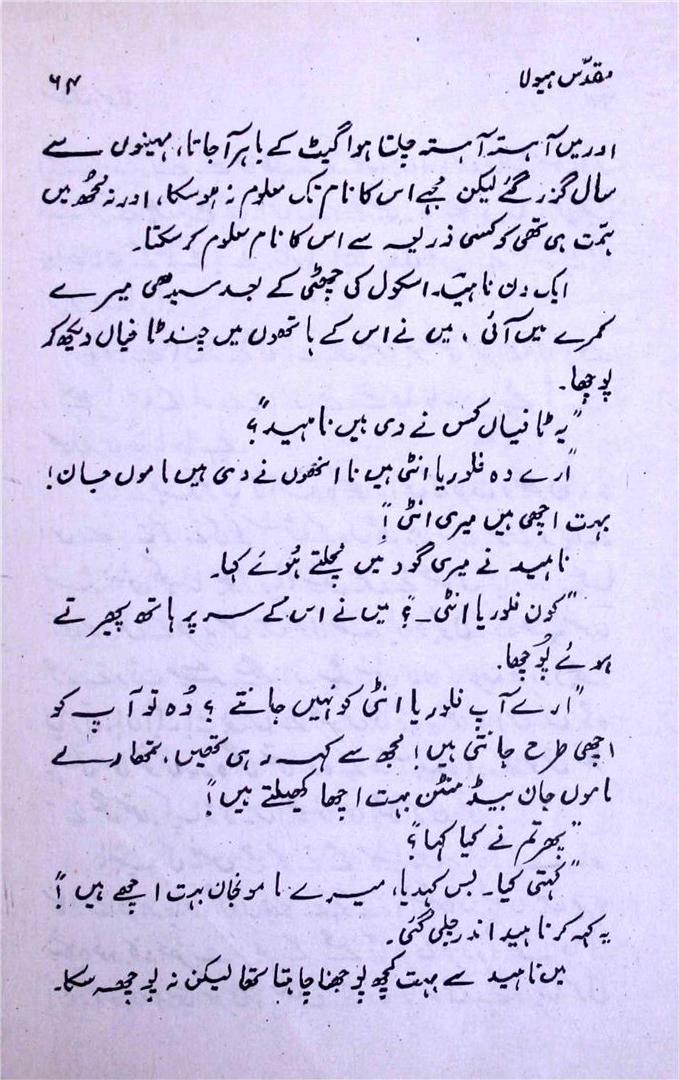 مقدّس ہیولا
۶۴
اور میں آہستہ آہستہ چلتا ہوا گیٹ کے باہر آجاتا، مہینوں سے
سال گزر گئے لیکن مجھے اس کا نام تک معلوم نہ ہوسکا، اور نہ مجھ میں
ہمّت ہی تھی کہ کسی ذریعہ سے اس کا نام معلوم کر سکتا۔
ایک دن ناہید۔ اسکول کی چھٹی کے بعد سیدھی میرے
کمرے میں آئی، میں نے اس کے ہاتھوں میں چند ٹافیاں دیکھ کر
پوچھا۔
"یہ ٹافیاں کس نے دی ہیں ناہید"؟
"ارے وہ فلوریا انٹی ہیں نا انھوں نے دی ہیں ماموں جان!
بہت اچھی ہیں میری انٹی"!
ناہید نے میری گود میں مچلتے ہوئے کہا۔
"کون فلوریا انٹی۔؟ میں نے اس کے سر پر ہاتھ پھیرتے
ہوئے پوچھا۔
"ارے آپ فلوریا انٹی کو نہیں جانتے؟ وُہ تو آپ کو
اچھی طرح جانتی ہیں! مجھ سے کہہ رہی تھیں، تمھارے
ماموں جان بیڈ منٹن بہت اچھا کھیلتے ہیں"!
"پھر تم نے کیا کہا"؟
"کہتی کیا۔ بس کہدیا، میرے مامونجان بہت اچھے ہیں"!
یہ کہہ کر ناہید اندر چلی گئی۔
میں ناہید سے بہت کچھ پوچھنا چاہتا تھا لیکن نہ پوچھ سکا۔